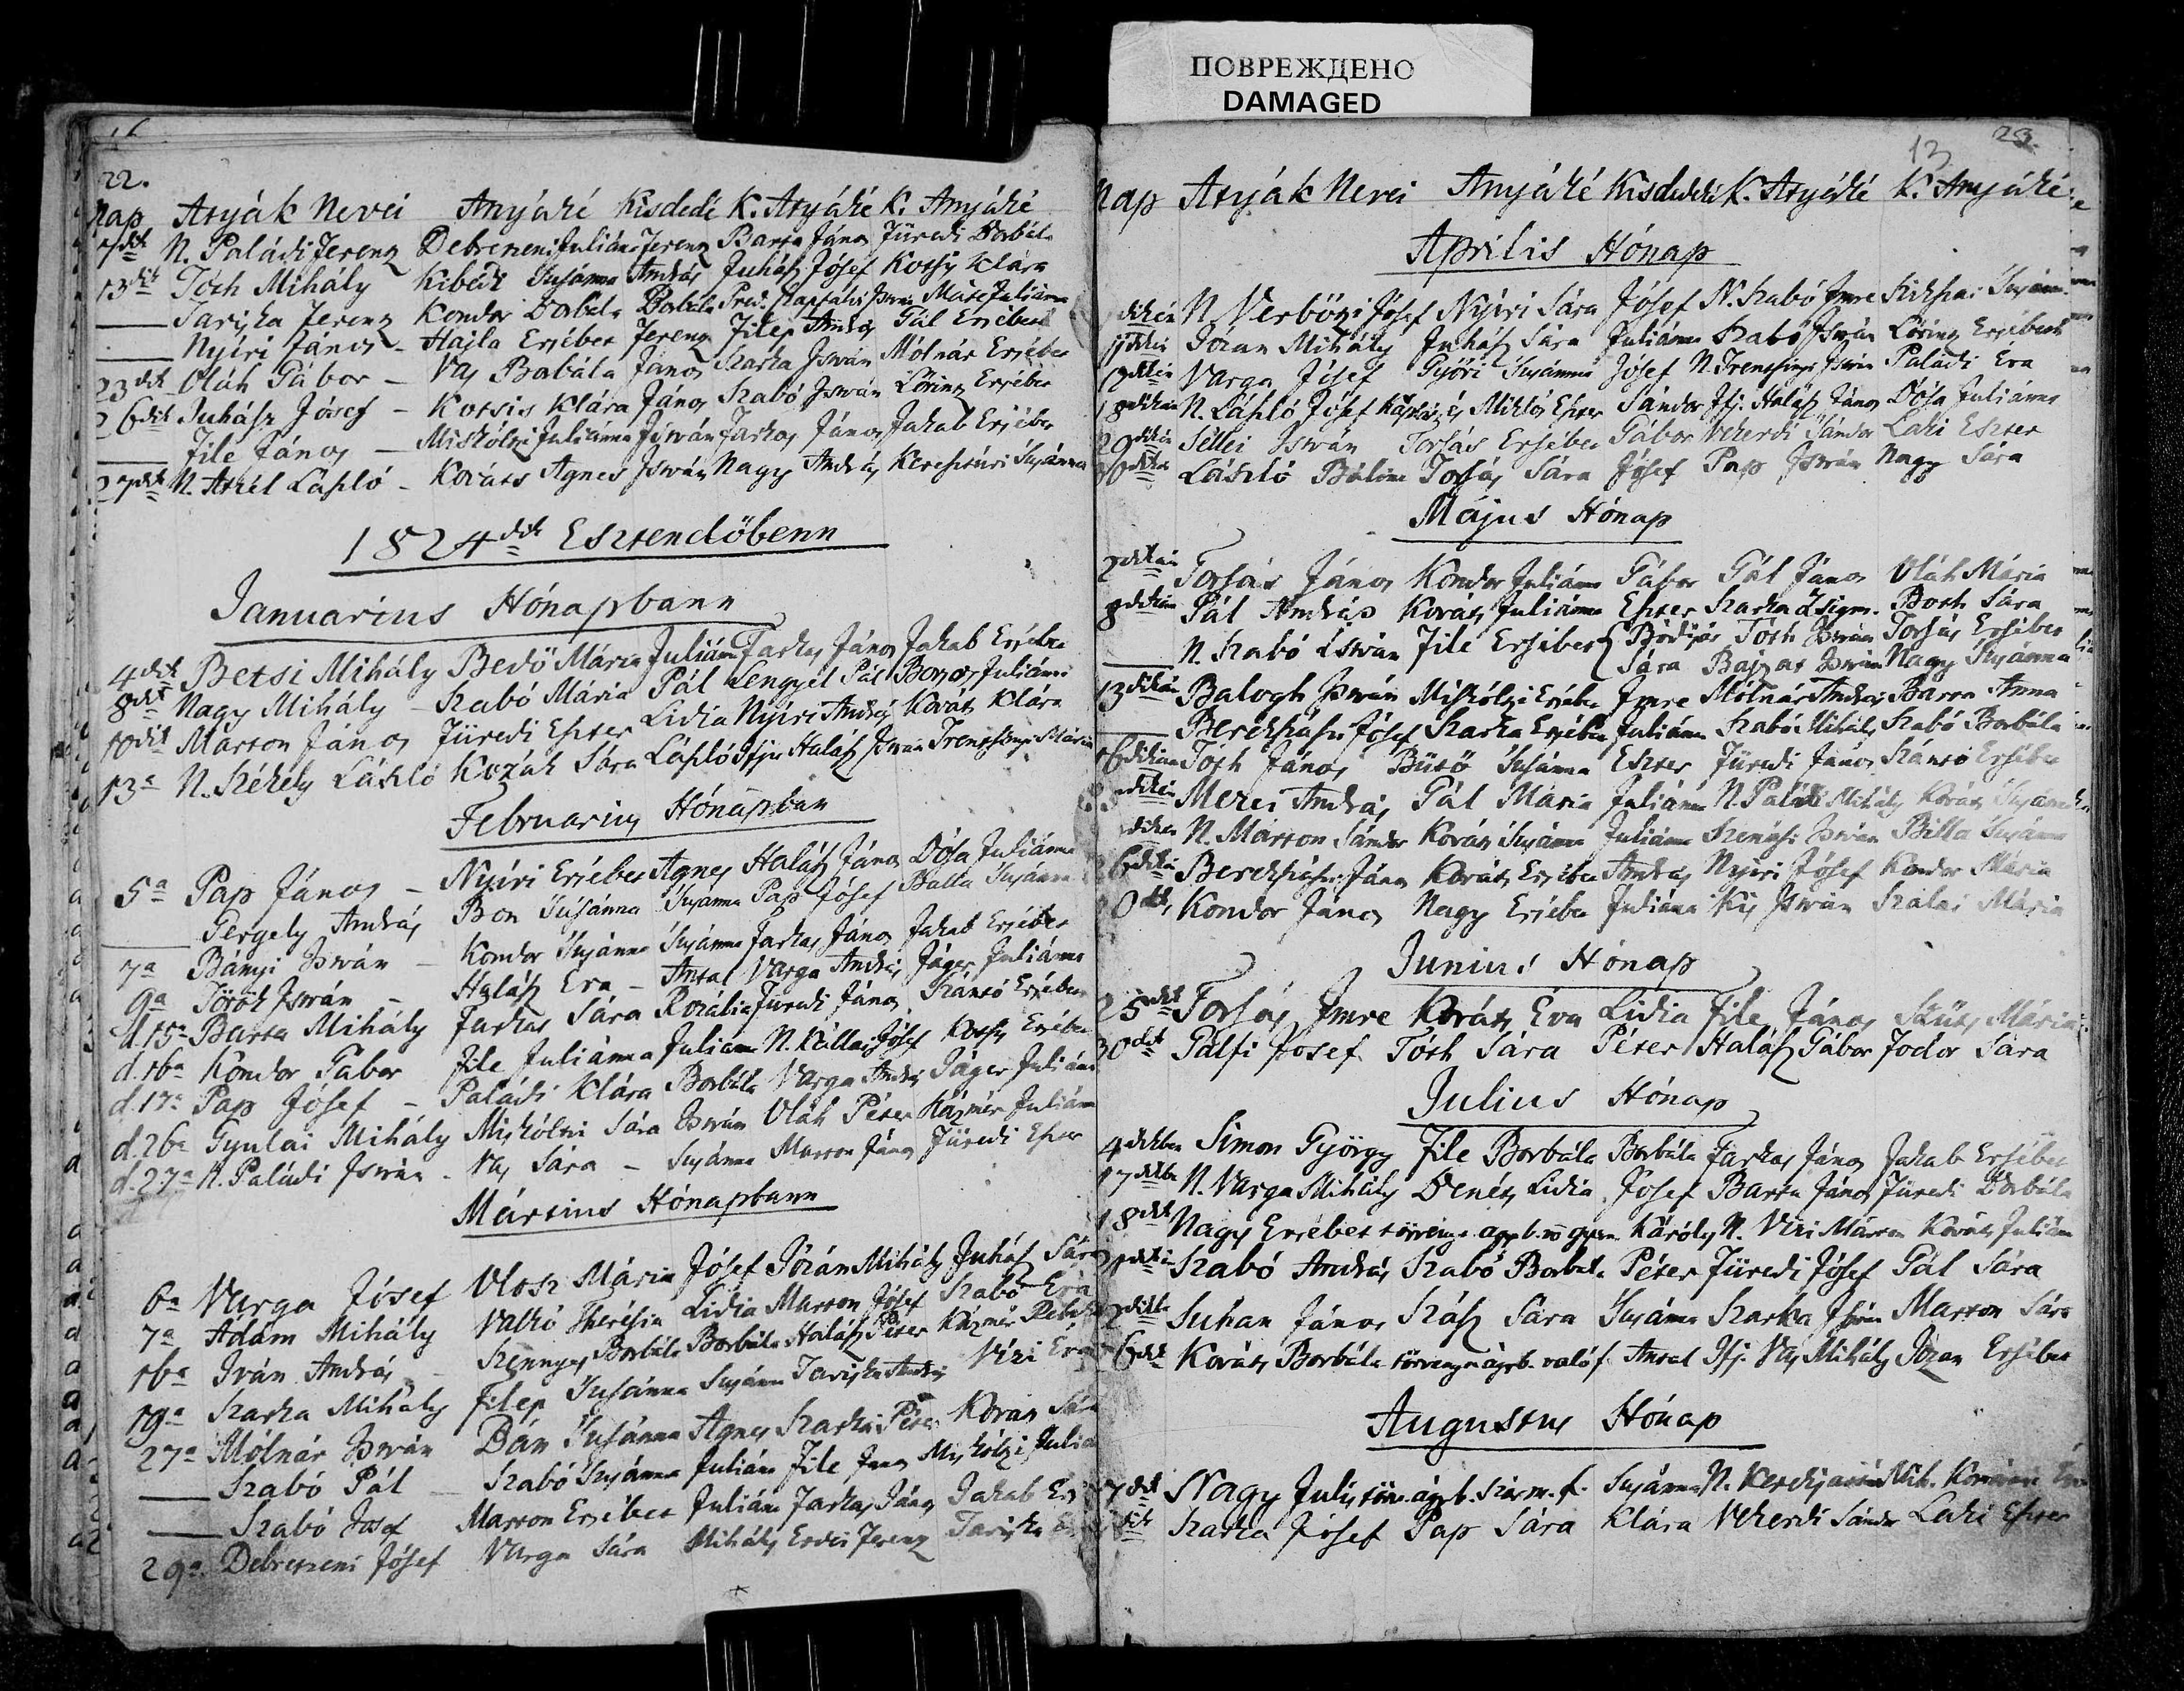 ПОВРЕЖДЕНО
DAMAGED
22.
Nap Atyák Nevei Anyáké Kisdedé K. Atyáké K. Anyáké
7dik N. Paládi Ferenz Debretzeni Juliána Ferenz Barta János Füredi Borbála
13dik Tóth Mihály Kibédi Susánna András Juhász Jósef Kotsis Klára
Tariska Ferenz Kondor Borbála Borbála Pred. István Máté Juliánna
Nyíri János - Hajla Ersébet Ferenz Filep András Gál Ersébet
23dik Oláh Gábor - Vas Borbála János Szarka István Mólnár Ersébet
26dik Juhász Jósef - Kotsis Klára János Szabó István Lörinz Ersébet
File János - Miskólzi Juliánna István Farkas János Jakab Ersébet
27dik N. László - Kováts Agnes István Nagy András Keresztúri Susánna
1824dik Esztendőbenn
Januarius Hónapbann
4dik Betsi Mihály Bedő Mária Juliánna Farkas János Jakab Ersébet
8dik Nagy Mihály - Szabó Mária Pál Lengyel Pál Juliánna
10dik Marton János Füredi Eszter Lidia Nyíri András Kováts Klára
13a N. Székely László Kozák Sára László Ifju Halász István Trentsényi Mária
Februarius Hónapban
5a Pap János - Nyíri Ersébet Agnes Halász János Dósa Juliánna
Gergely András Bon Susánna Susánna Pap Jósef Balla Susánna
7a Bányi István - Kondor Susánna Susánna Farkas János Jakab Ersébet
9a Török István - Halász Eva - Antal Varga András Jáger Juliánna
d.15a Barta Mihály Farkas Sára Rozália Füredi János Szántó Ersébet
d.16a Kondor Gábor File Juliánna Juliána N. Kállai Jósef Kotsis Ersébet
d.17a Pap Jósef - Paládi Klára Borbála Varga András Jáger Juliána
d.26a Gyulai Mihály Miskóltzi Sára István Oláh Péter Kázmér Juliána
d.27a N. Paládi István - Vas Sára - Susánna Marton János Füredi Eszter
Mártius Hónapbann
6a Varga Jósef Mária Jósef Józan Mihály Juhász Sára
7a Adám Mihály Valkó Therésia Lidia Marton Jósef Szabó Eva
16a Iván András - Szennyes Borbála Borbála Halász Péter Kázmér
19a Szarka Mihály Filep Susánna Susánna Tariska András Vizi
27a Mólnár István Dán Susánna Agnes Szarka Péter Kováts Sára
Szabó Pál - Szabó Susánna Juliána File János Miskólzi
Szabó Josef Marton Ersébet Juliána Farkas János Jakab
29a. Debretzeni Jósef Varga Sára Mihály Erdei Ferenz Tariska
13 23.
Nap Atyák Nevei Anyáké Kisdedeké K. Atyáké K. Anyáké
Április Hónap
N. Verbőzi Jósef Nyíri Sára Jósef N. Szabó Imre Susánna
11dikén Józan Mihály Juhász Sára Juliánna Szabó István Lörinz Ersébeth
Varga Jósef Győri Susánna Jósef N. Trentsényi István Paládi Eva
N. László Jósef Miklós Eszter Sándor Ifj. Halász János Dósa Juliánna
29dikén Séllei István Torsás Ersébet Gábor Vekerdi Sándor Laki Eszter
László Bálint Torsás Sára Jósef Pap István Nagy Sára
Május Hónap
2dikán Torsás János Kondor Juliánna Gábor Gál János Oláh Mária
8dikán Pál András Kováts Juliánna Eszter Szarka Zsigm. Both Sára
N. Szabó István File Ersébet { Tóth István Torsás Ersébet
Sára Bajzat István Nagy Susánna
13dikán Balogh István Miskólzi Ersébet Imre Mólnár András Barta Anna
Jósef Szarka Ersébet Juliána Szabó Mihály Szabó Borbála
16dikán Tóth János Bütő Susánna Eszter Füredi János Szántó Ersébet
Mezei András Gál Mária Juliánna N. Paládi Mihály Kováts Susánna
N. Marton Sándor Kováts Susánna Juliánna Szenási István Billa Susánna
János Kováts Ersébet András Nyíri Jósef Kondor Mária
Kondor János Nagy Ersébet Juliánna Kis István Szalai Mária
Junius Hónap
25dik Torsás Imre Kováts Eva Lidia File János Szüts Mária
30dik Pálfi Josef Tóth Sára Péter Halász Gábor Fodor Sára
Julius Hónap
4dikben Simon György File Borbála Borbála Farkas János Jakab Ersébet
17dikbe N. Varga Mihály Denéts Lidia Jósef Barta János Füredi Borbála
18dik Nagy Ersébet Károly N. Vizi Márton Kováts Juliána
Szabó András Szabó Borbála Péter Füredi Jósef Gál Sára
Suhan János Szász Sára Susánna Szarka Marton Sára
Kováts Borbála való f. Antal Ifj. Vas Mihály Józan Ersébet
Augustus Hónap
7dik Nagy Susánna N.
Szarka Jósef Pap Sára Klára Vekerdi Sándor Laki Eszter